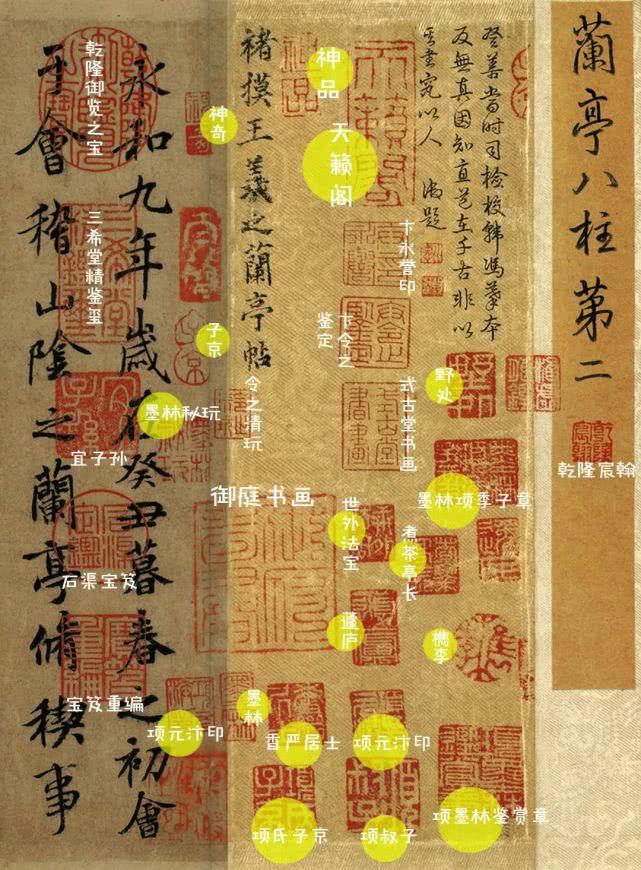 蘭亭八柱第二
乾隆宸翰
登善當時司檢校韓馮摹本
反無真因知直道在千古非以
究以人 御題
野处
墨林项季子章
檇李
项墨林鉴赏章
神品
天籁阁
卞永誉印
卞令之
鉴定
式古堂书画
世外法宝
煮茶亭长
蘧庐
项元汴印
项叔子
褚摸王羲之蘭亭帖
令之清玩
御庭书画
墨林
香严居士
项氏子京
神奇
子京
墨林秘玩
项元汴印
永和九年歲在癸丑暮春之初會
于會稽山陰之蘭亭脩稧事
乾隆御览之宝
三希堂精鉴玺
宜子孙
石渠宝笈
宝笈重编